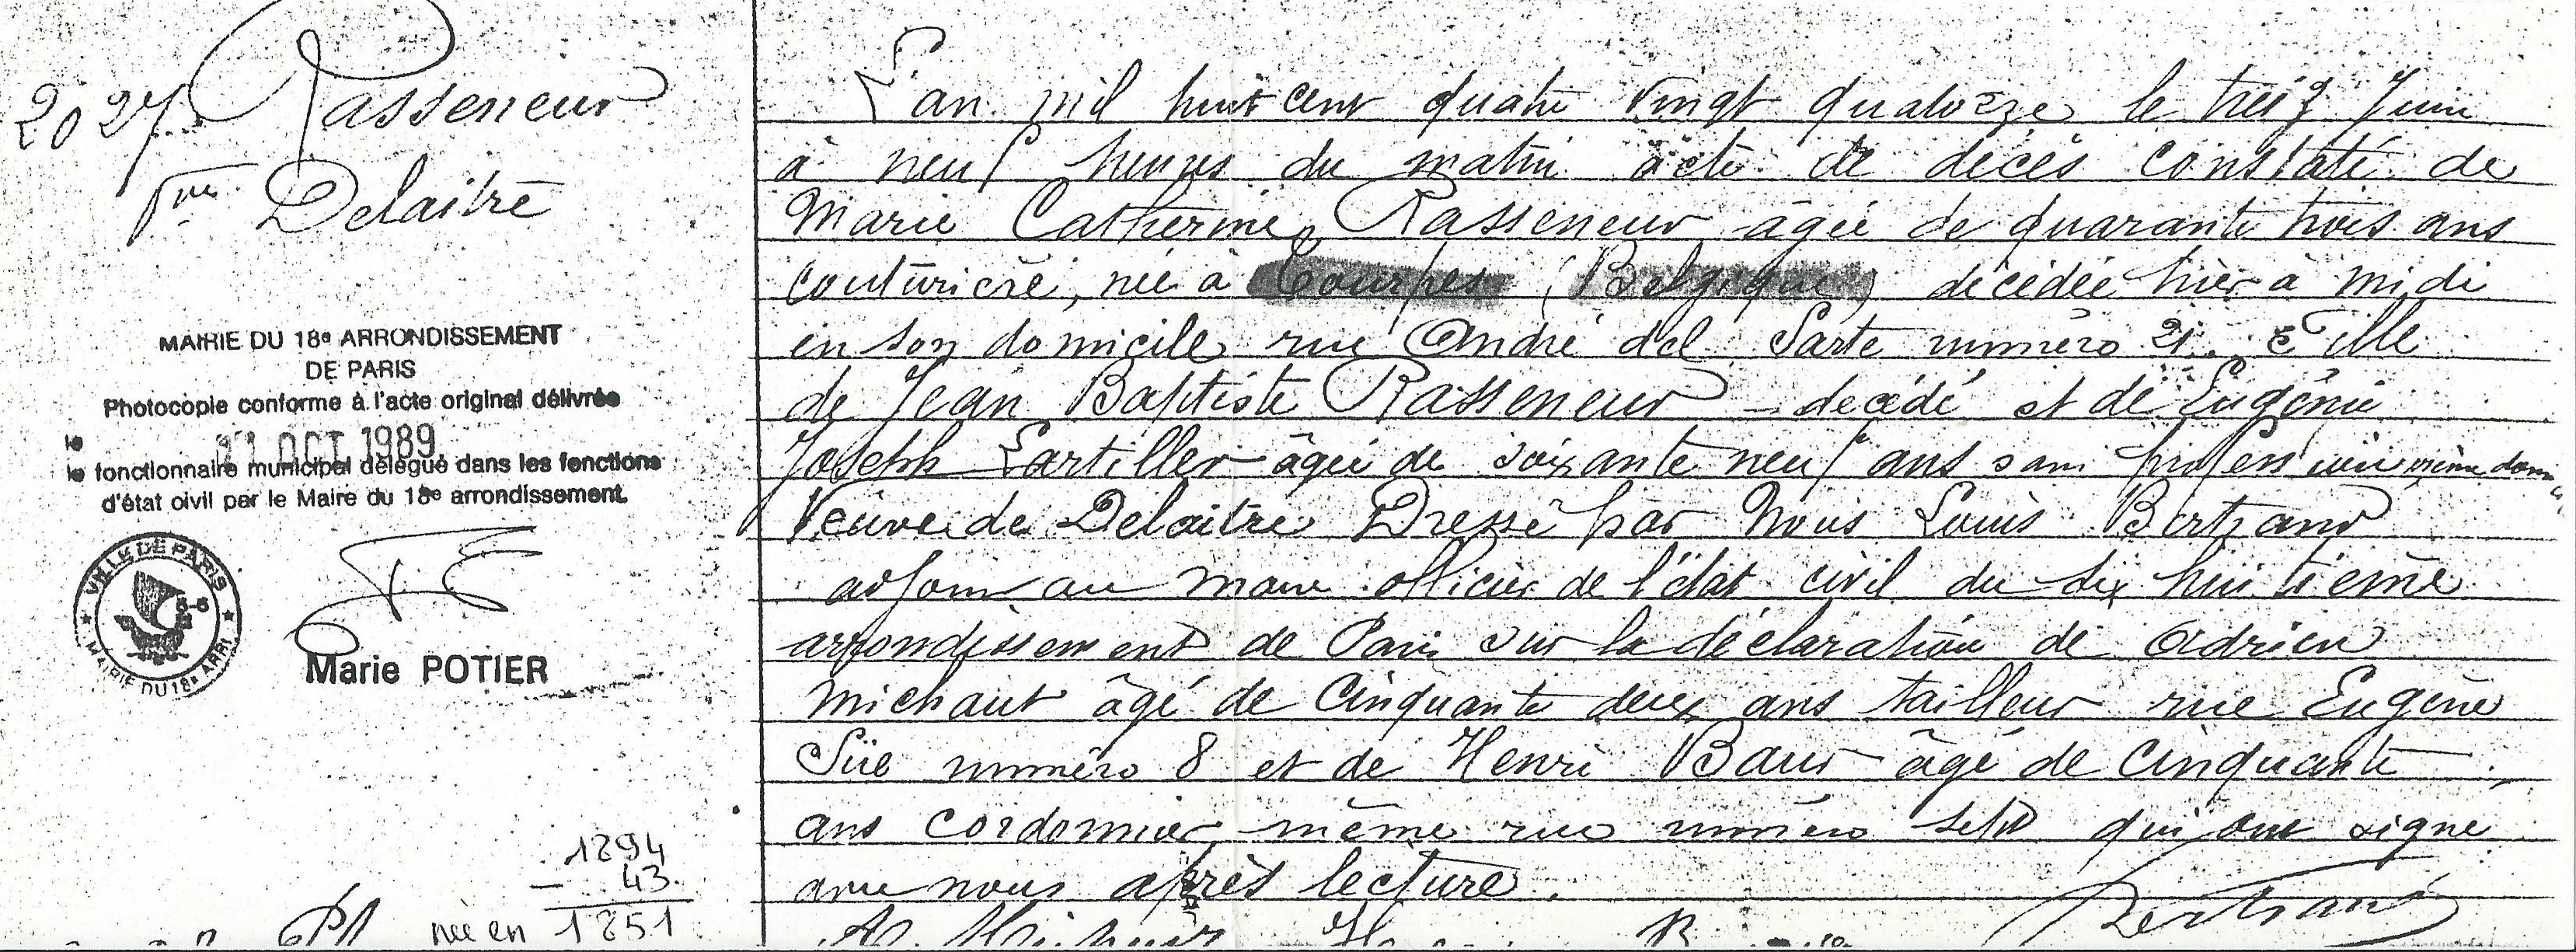 2027 Rasseneur
Vve Delaitre
MAIRIE DU 18e ARRONDISSEMENT
DE PARIS
Photocopie conforme à l'acte original délivrée
le 21 OCT 1989
le fonctionnaire municipal délégué dans les fonctions
d'état civil par le Maire du 18e arrondissement.
VILLE DE PARIS
MAIRIE DU 18e ARRt
Marie POTIER
1894
- 43
née en 1851
L'an mil huit cent quatre vingt quatorze le treiz Juin
à neuf heures du matin acte de décès constaté de
Marie Catherine Rasseneur âgée de quarante trois ans
couturière, née à Tourpes (Belgique) décédée hier à midi
en son domicile rue André del Sarte numéro 21. Fille
de Jean Baptiste Rasseneur – décédé et de Eugénie
Joseph Lartiller âgée de soixante neuf ans sans profession même domc
Veuve de Delaitre Dressé par Nous Louis Bertrand
adjoint au maire officier de l'état civil du dix huitième
arrondissement de Paris sur la déclaration de Adrien
Michaut âgé de cinquante deux ans tailleur rue Eugène
Süe numéro 8 et de Henri Baur âgé de cinquante
ans cordonnier même rue numéro sept qui ont signé
avec nous après lecture.
Bertrand